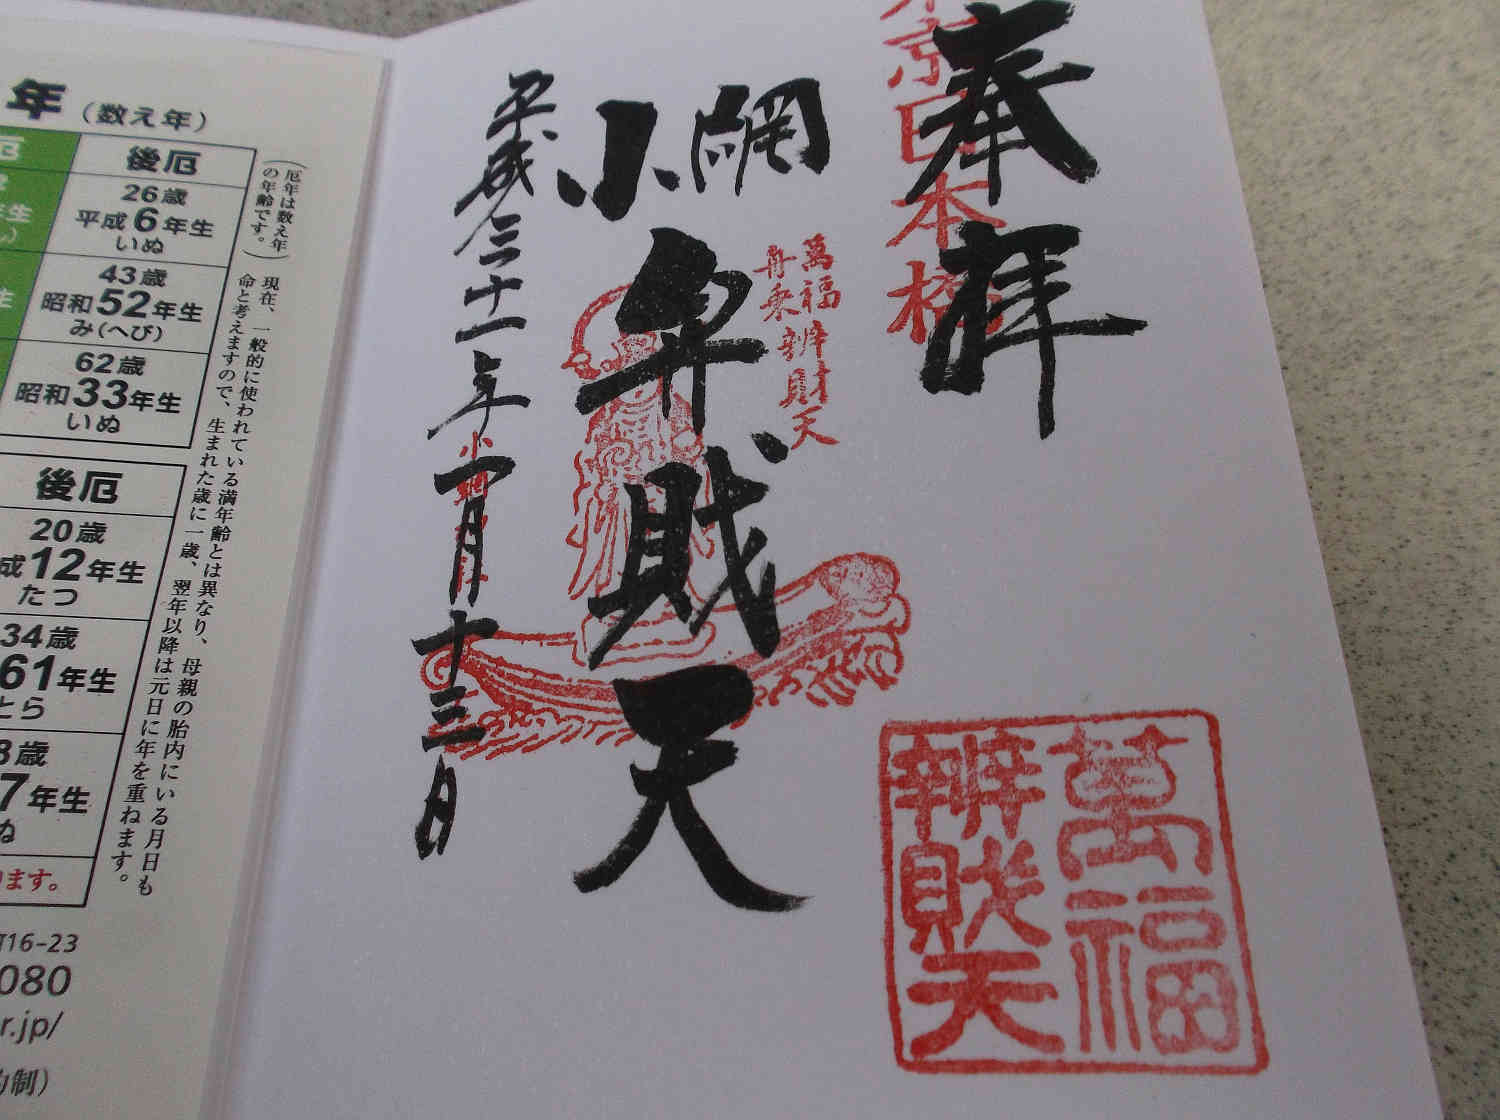 奉拝
東京日本橋
萬福
舟乗辨財天
小網
弁財天
平成三十一年一月十三日
萬福
辨財天
年（数え年）
厄
後厄
26歳
平成6年生
いぬ
43歳
昭和52年生
み(へび)
62歳
昭和33年生
いぬ
後厄
20歳
成12年生
たつ
34歳
61年生
とら
8歳
7年生
ぬ
ります。
（厄年は数え年
の年齢です。）
現在、一般的に使われている満年齢とは異なり、母親の胎内にいる月日も
命と考えますので、生まれた歳に一歳、翌年以降は元日に年を重ねます。
16-23
080
r.jp/
約制）